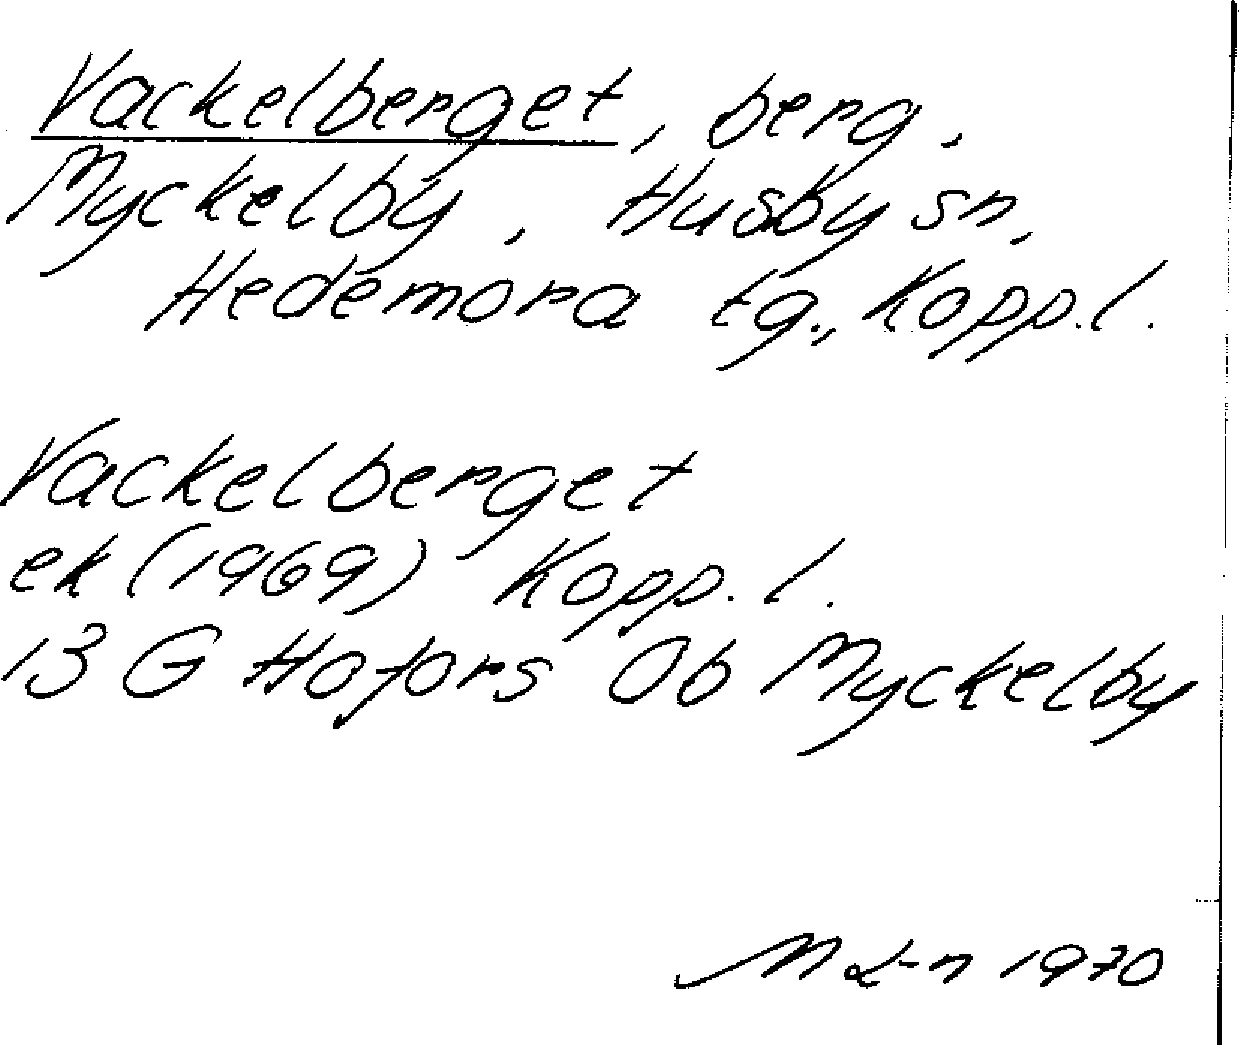 Vackelberget, berg,
Myckelby, Husby sn,
Hedemora tg., Kopp.l.
Vackelberget
ek (1969) Kopp. l.
13 G Hofors 0b Myckelby
M L-n 1970